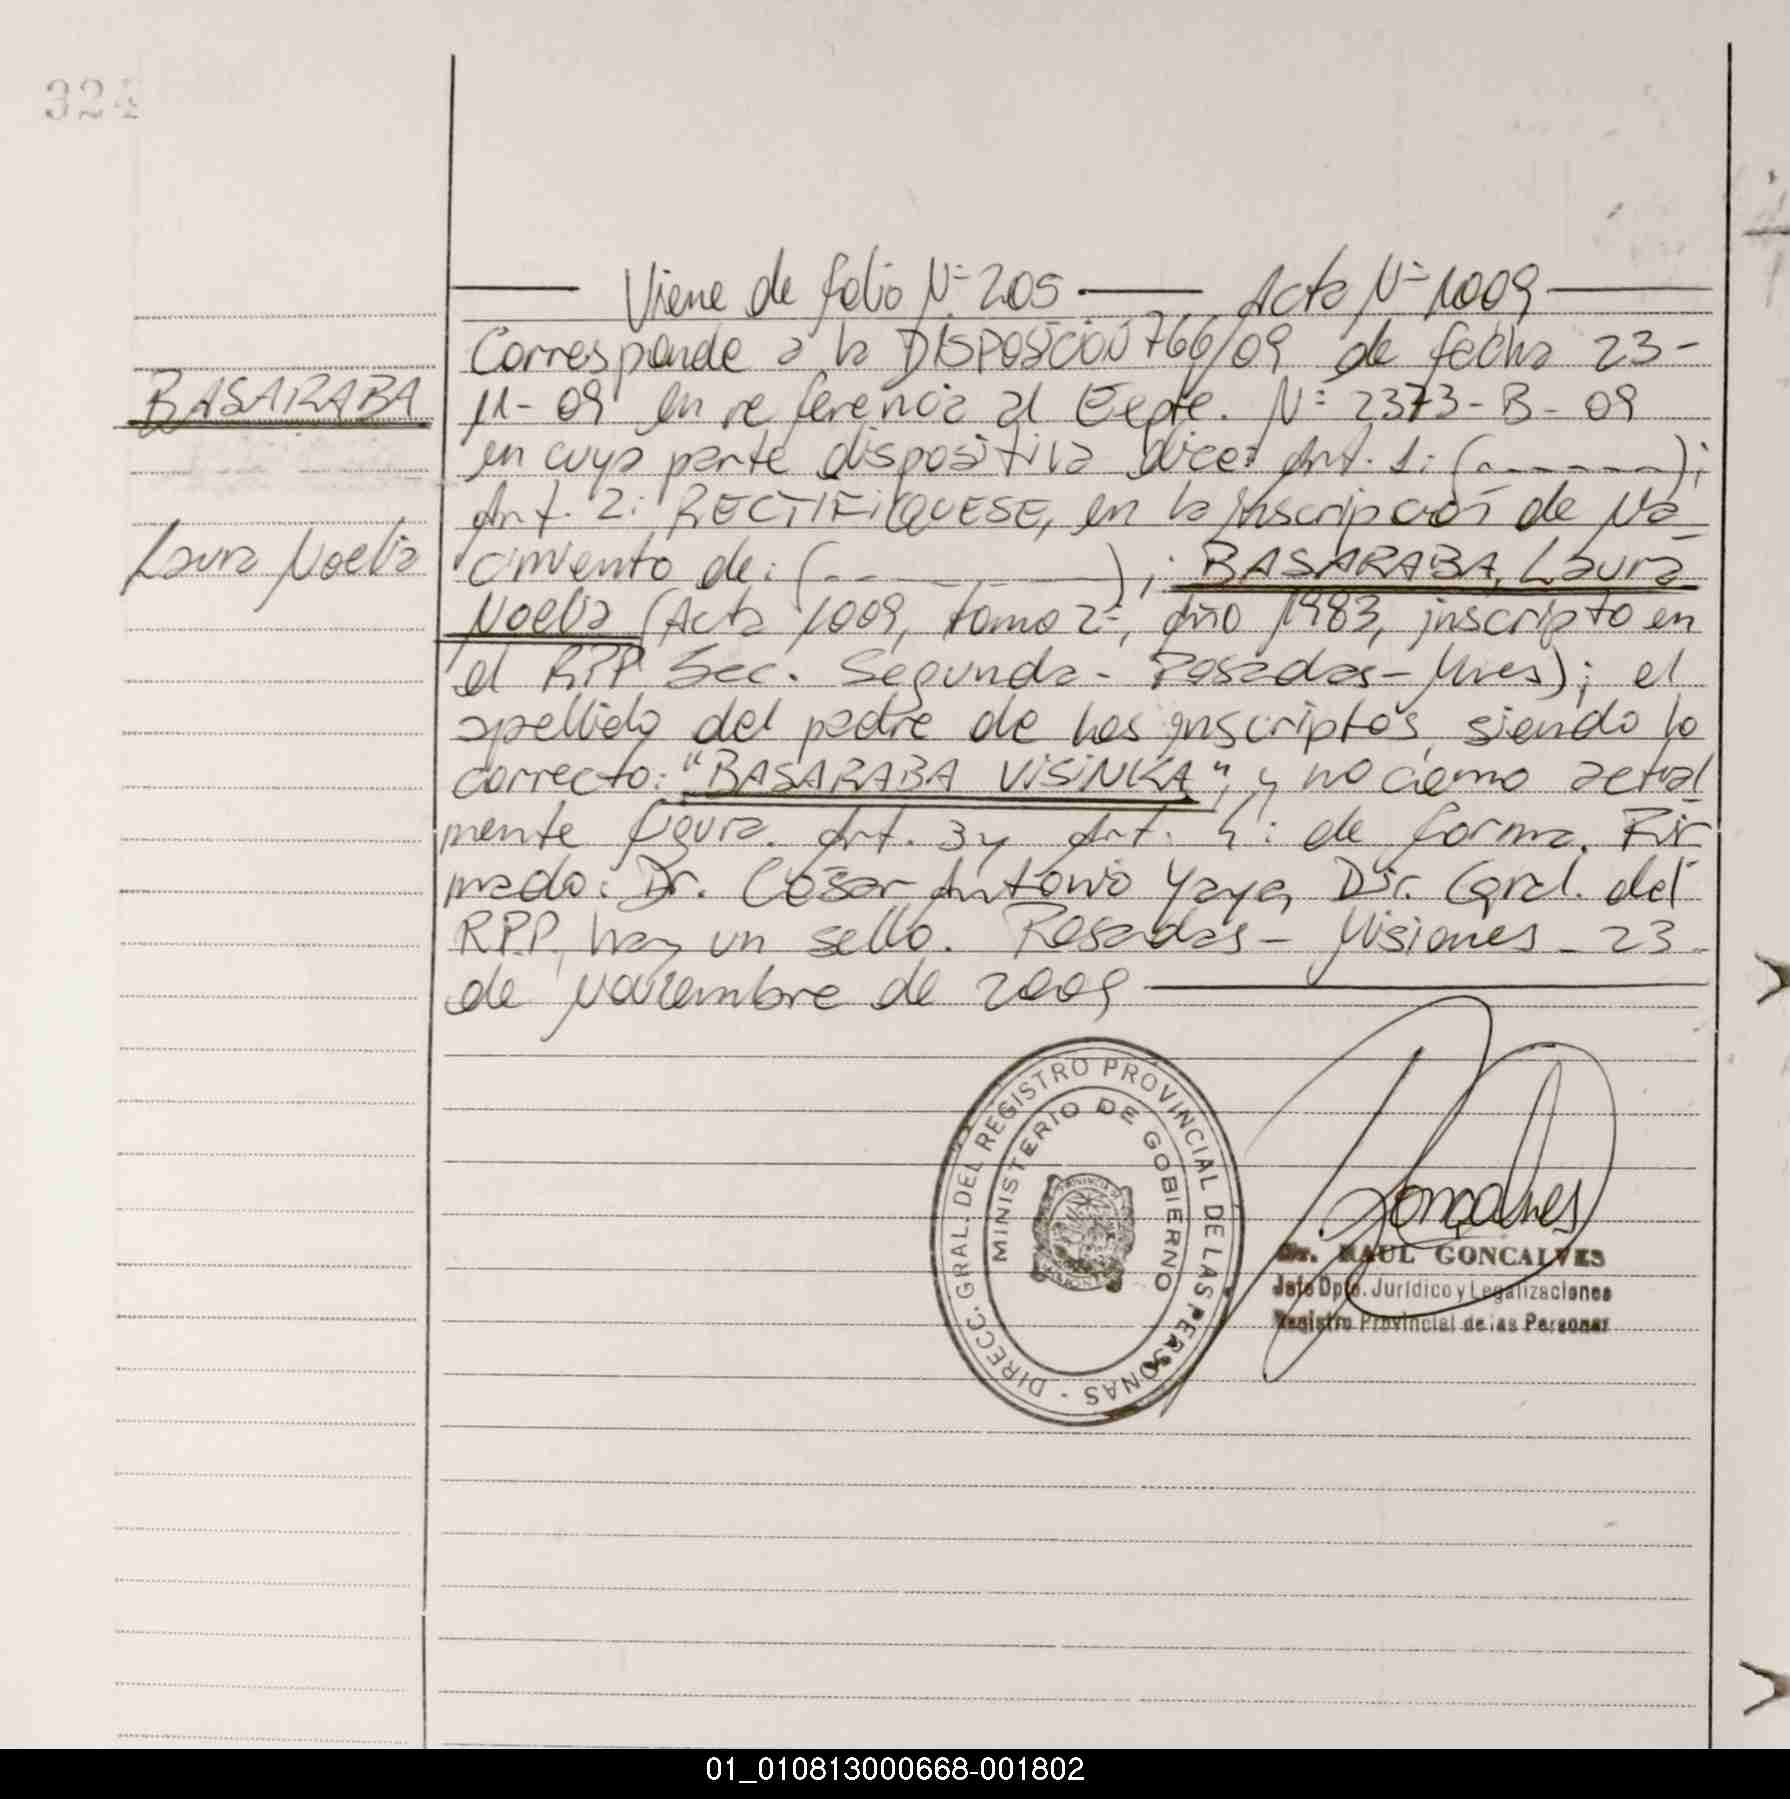 324
Viene de folio Nº 205 Acta Nº 1009
Corresponde a la DISPOSICION 766/09 de fecha 23-
11-09 en referencia al Expte. Nº 2373-B-09
en cuya parte dispositiva dice: Art. 1: (------);
Art. 2: RECTIFIQUESE, en la inscripción de Na
cimiento de: (------); BASARABA, Laura
Noelia (Acta 1009, tomo 2º, año 1983, inscripto en
el RPP Sec. Segunda - Posadas - Mnes); el
apellido del padre de los inscriptos, siendo lo
correcto: "BASARABA VISINKA", y no como actual
mente figura. Art. 3 y Art. 4: de forma. Fir
mado: Dr. César Antonio Yaya, Dir. Gral. del
RPP, hay un sello. Posadas - Misiones - 23
de noviembre de 2009
BASARABA
Laura Noelia
DIRECC. GRAL. DEL REGISTRO PROVINCIAL DE LAS PERSONAS -
MINISTERIO DE GOBIERNO
Goncalves
Dr. RAUL GONCALVES
Jefe Dpto. Jurídico y Legalizaciones
Registro Provincial de las Personas
01_010813000668-001802